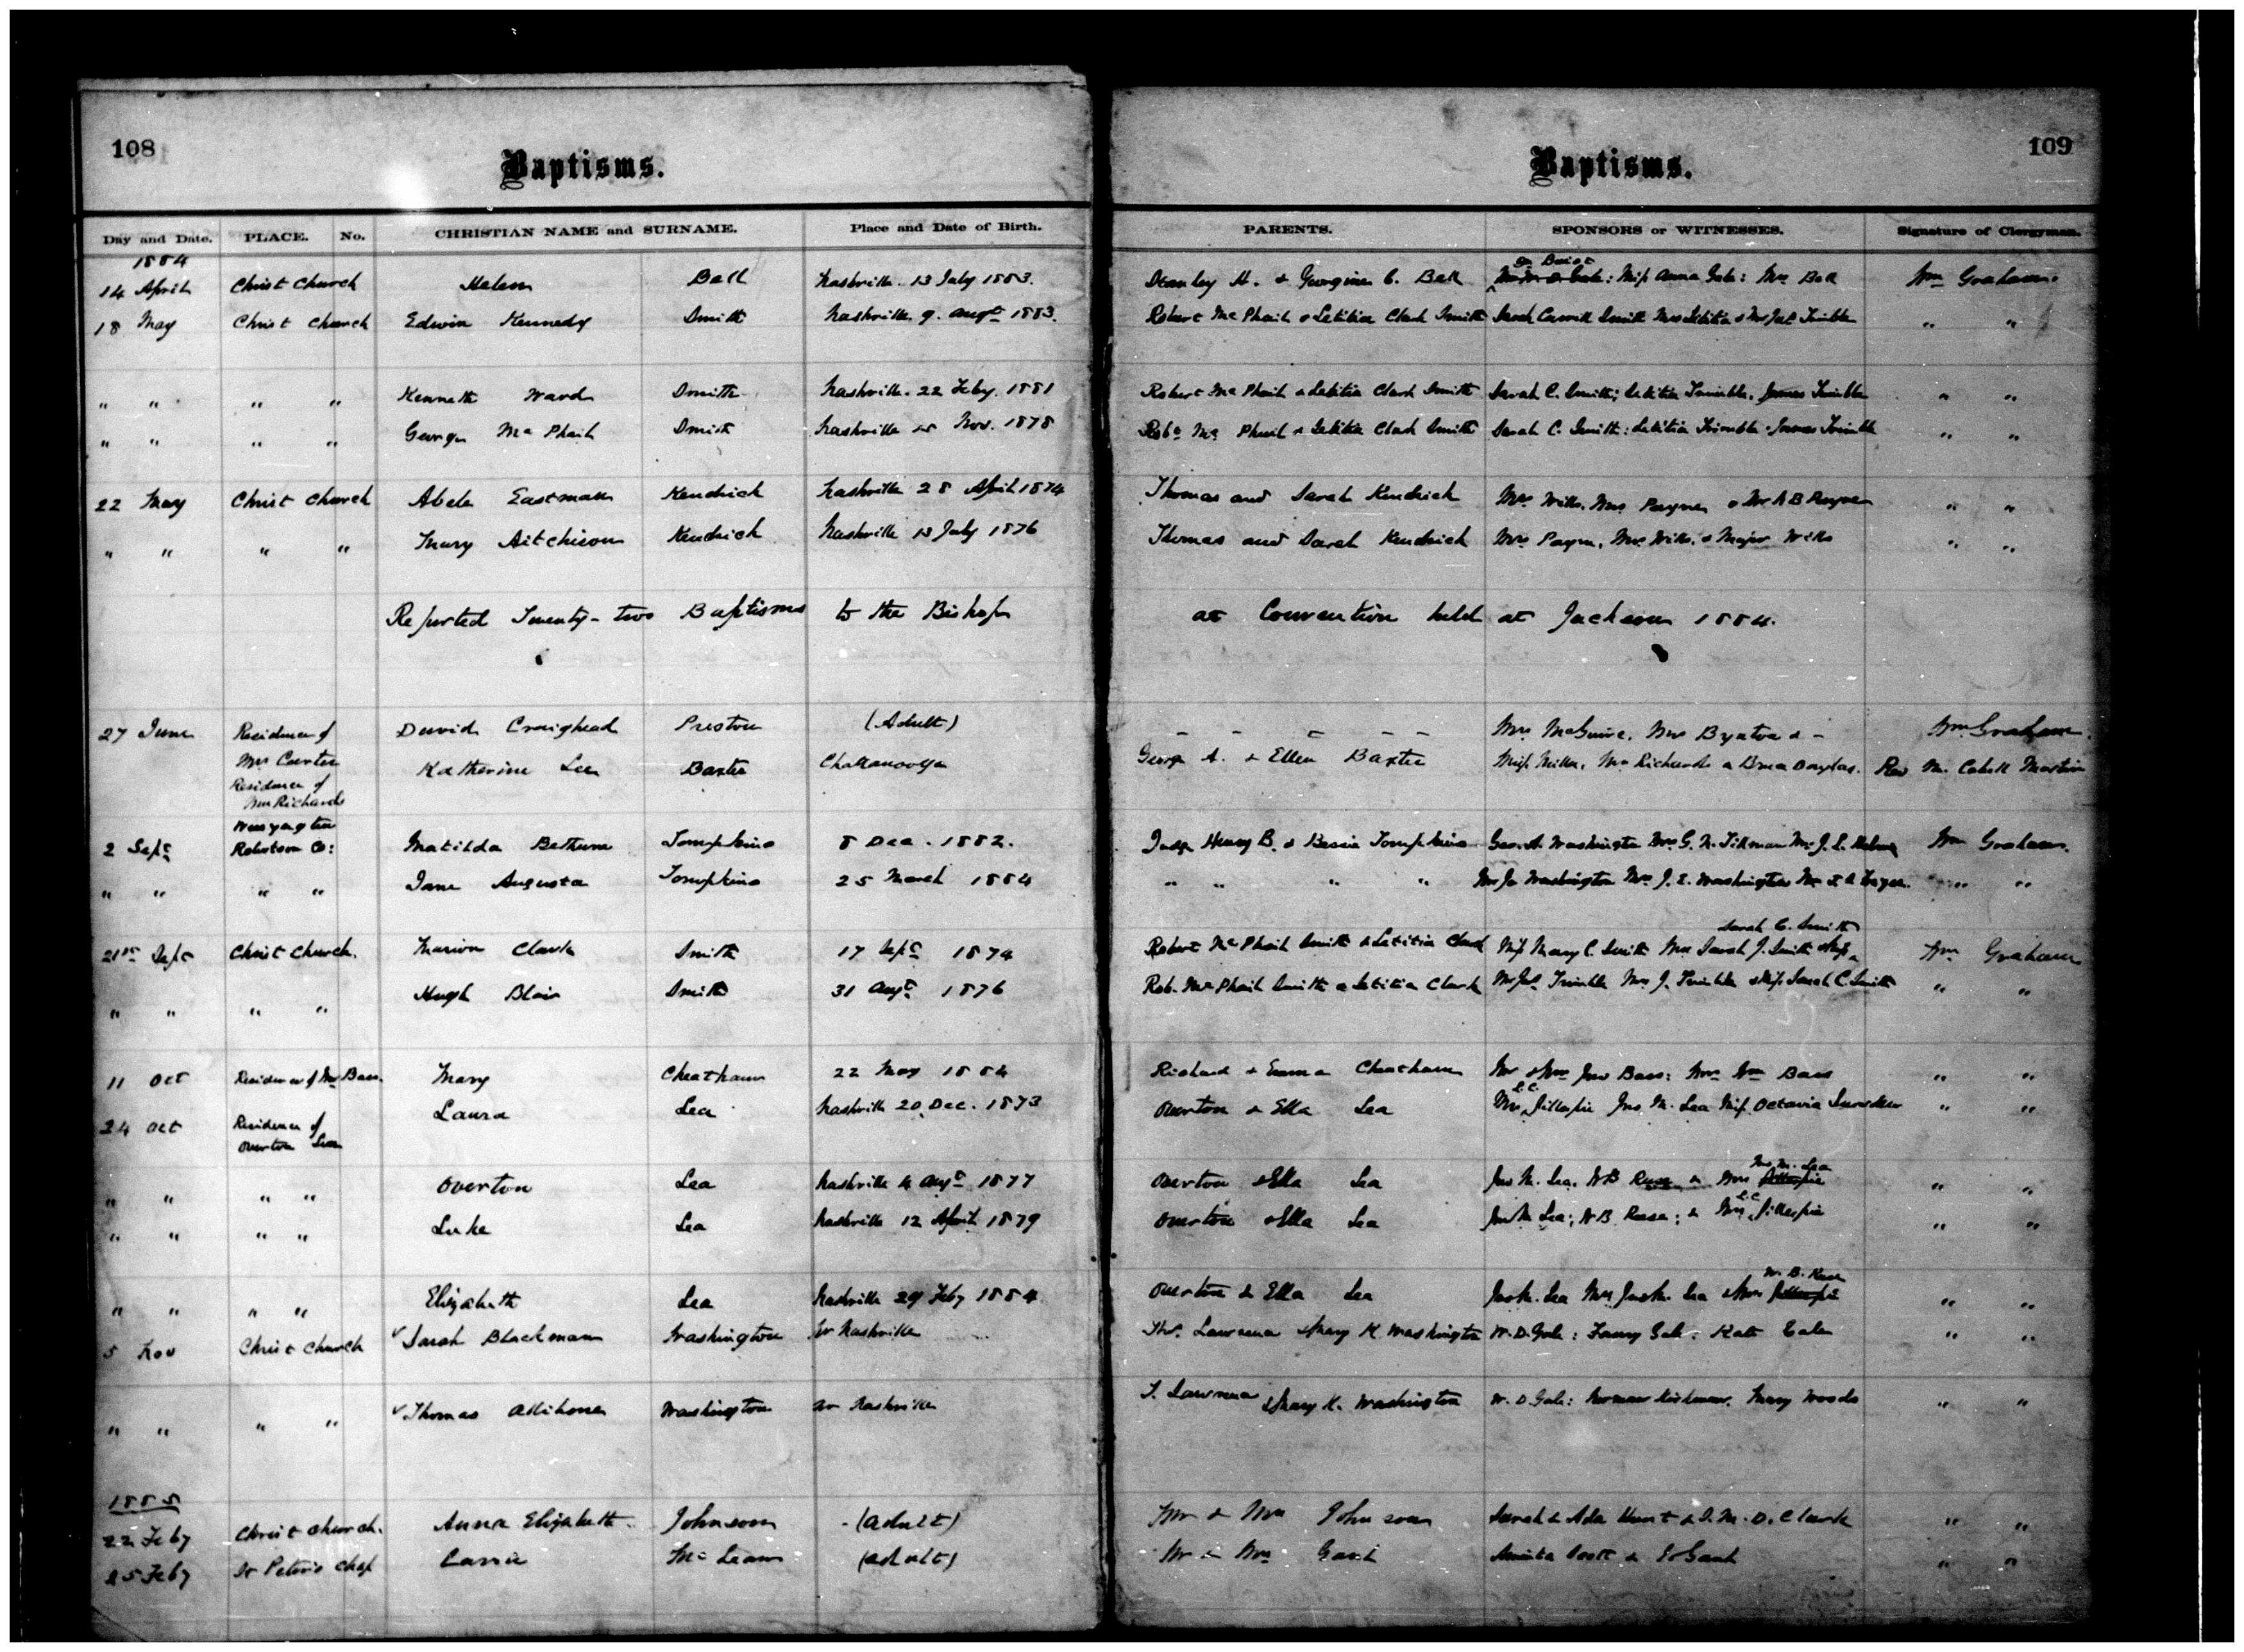 108
Baptisms.
Day and Date. PLACE. No. CHRISTIAN NAME and SURNAME. Place and Date of Birth.
1884
14 April Christ Church Helen Bell Nashville 13 July 1883.
18 May Christ Church Edwin Kennedy Smith Nashville 9. Augt 1883.
" " " " Kenneth Ward Smith Nashville. 22 Feby. 1881
" " " " George McPhail Smith Nashville Nov. 1878
22 May Christ Church Abele Eastman Kendrick Nashville 28 April 1874
" " " " Mary Aitchison Kendrick Nashville 13 July 1876
Reported Twenty-two Baptisms to the Bishop
27 June Residence of David Craighead Preston (Adult)
Mrs Carter Katherine Lee Baxter Chattanooga
Residence of
Mrs Richards
Wessyngton
2 Sept Robertson Co: Matilda Bethune Tompkins 8 Dec. 1882.
" " " " Jane Augusta Tompkins 25 March 1884
21st Sept Christ Church. Marion Clark Smith 17 Sept 1874
" " " " Hugh Blair Smith 31 Augt 1876
11 Oct Residence of Mr Bass. Mary Cheatham 22 May 1884
24 Oct Residence of Laura Lea Nashville 20 Dec. 1873
Overton Lea
" " " " Overton Lea Nashville Augt 1877
" " " " Luke Lea Nashville 12 April 1879
" " " " Elizabeth Lea Nashville 29 Feby 1884
5 Nov Christ Church Sarah Blackman Washington Nr Nashville
" " " " Thomas Washington Nr Nashville
1885
22 Feby Christ Church. Anna Elizabeth Johnson (adult)
25 Feby St Peter's Chap Carrie (adult)
109
Baptisms.
PARENTS. SPONSORS or WITNESSES. Signature of Clergyman.
Stanley H. & Georgina C. Bell Miss Anna Gale: Mrs Bell Wm Graham.
Robert McPhail & Letitia Clark Smith Sarah Smith Mrs Letitia & Trimble " "
Robert McPhail & Letitia Clark Smith Sarah C. Smith; Letitia Trimble, James Trimble " "
Robt Mc Phail & Letitia Clark Smith Sarah C. Smith: Letitia Trimble James Trimble " "
Thomas and Sarah Kendrick Mrs Wills, Mrs Payne, & Mr A B Payne " "
Thomas and Sarah Kendrick Mrs Payne, Mrs Wills, & Major Wills " "
at Convention held at Jackson 1884.
Mrs McGuire, Mrs & Wm Graham.
George A. & Ellen Baxter Miss Miller, Mrs Richards & Douglas. Rev M. Cabell Martin
Judge Henry B. & Bessie Tompkins Geo. A. Washington Mrs G. N. Tillman Wm Graham.
" " " " Washington Mrs J. E. Washington " "
Sarah C. Smith
Robert McPhail Smith & Letitia Clark Miss Mary C. Smith Mrs Sarah J. Smith & Miss Wm Graham
Rob. McPhail Smith & Letitia Clark Trimble Mrs J. Trimble & Miss Sarah C. Smith " "
Richard & Emma Cheatham Mr & Mrs Jno Bass: Mrs Wm Bass " "
L.C.
Overton & Ella Lea Mrs Gillespie Jno M. Lea Miss Octavia " "
Overton & Ella Lea Jno M. Lea, W B Reese & Mrs Gillespie " "
Jno M. Lea
L.C.
Overton & Ella Lea Jno M Lea; W B. Reese; & Mrs Gillespie " "
W. B. Reese
Overton & Ella Lea Lea Mrs Lea & Mrs Gillespie " "
Lawrence & Mary K. Washington W. D. Gale: Fanny Gale: Kate Gale " "
T. Lawrence & Mary K. Washington W. D. Gale: Norman Kirkman, Mary Woods " "
Mr & Mrs Johnson Sarah & Ada Hunt & Clark " "
Mr & Mrs Scott & " "